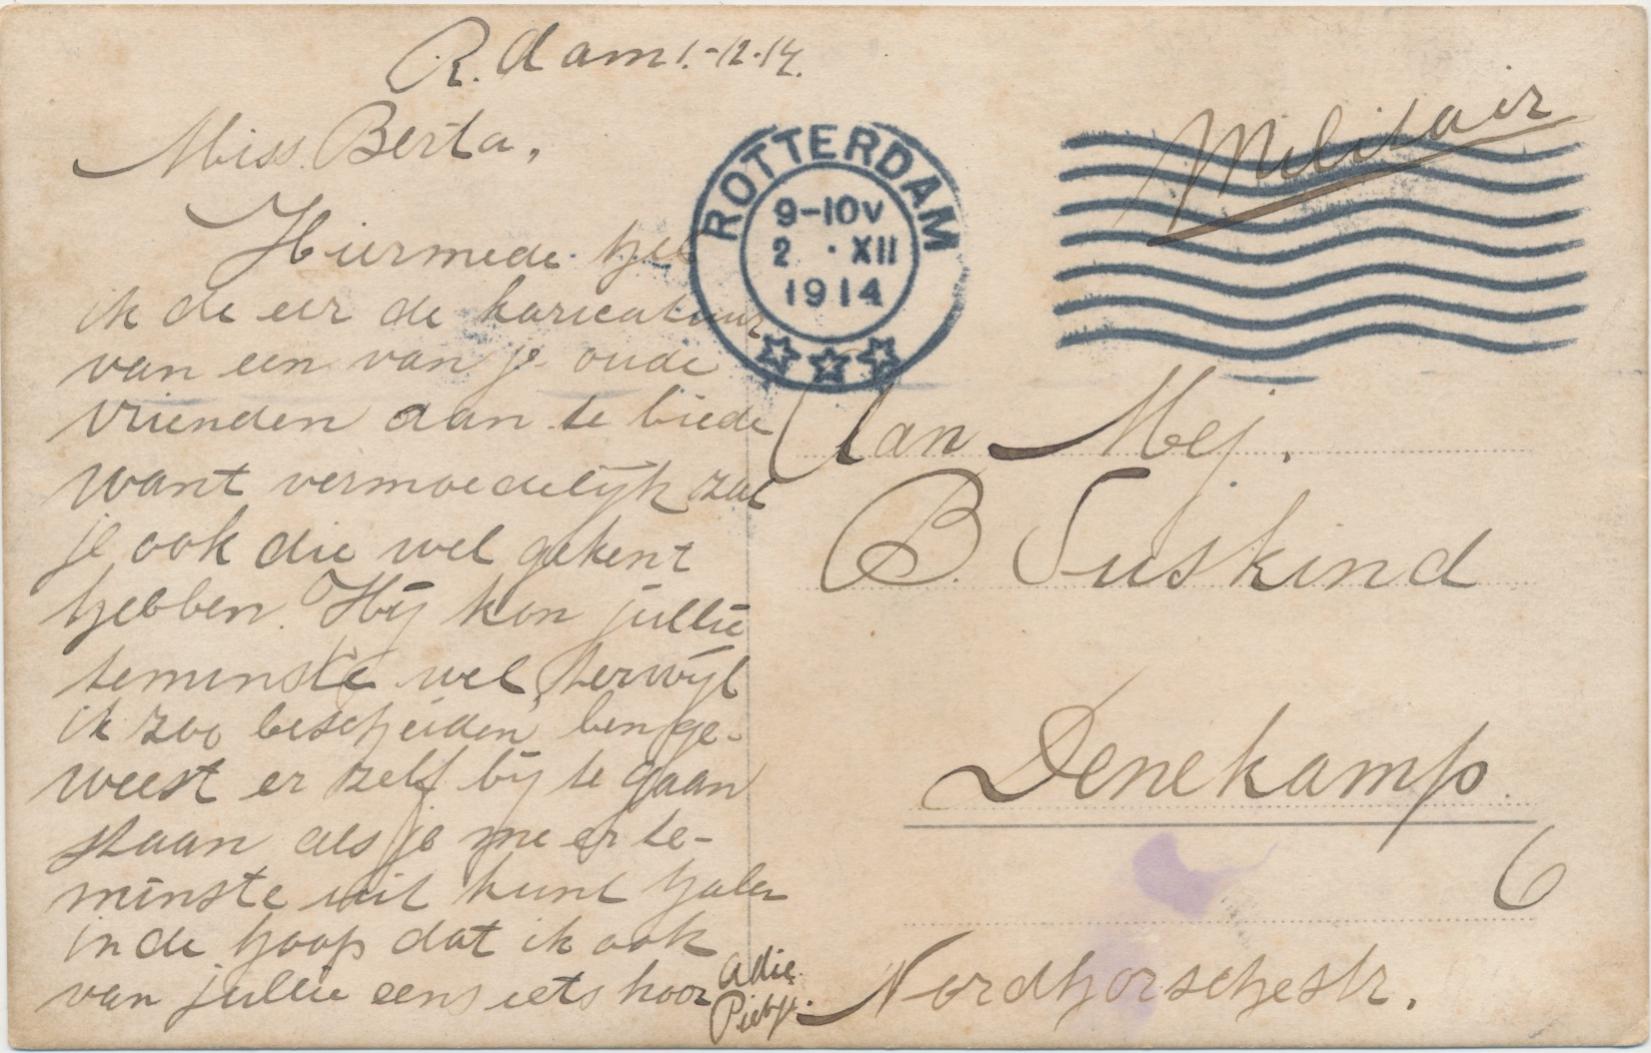 R.dam 1.-12.14.
Miss Berta,
Hiermede heb
ik de eer de karicatuur
van een van je oude
vrienden aan te biede
want vermoedelijk zal
je ook die wel gekent
hebben. Hij kon jullie
teminste wel, terwijl
ik zoo bescheiden ben ge-
weest er zelf bij te gaan
staan als je me er te-
minste uit kunt halen
in de hoop dat ik ook
van jullie eens iets hoor
adie.
Pieth.
ROTTERDAM
9-10V
2 · XII
1914
Militair
Aan Mej.
B. Suskind
Denekamp.
6
Nordhorschestr.